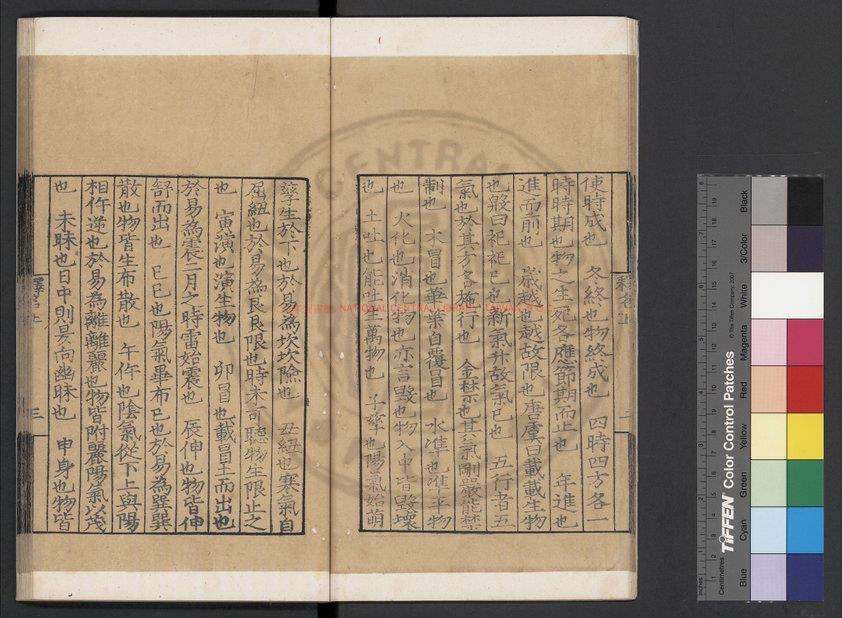 使時成也 冬終也物終成也 四時四方各一
時時期也物之生死各應節期而止也 年進也
進而前也 歲越也越故限也唐虞曰載載生物
也殷曰祀祀巳也新氣升故氣巳也 五行者五
氣也於其方各施行也 金禁也其氣剛嚴能禁
制也 木冒也華葉自覆冒也 水準也準平物
也 火化也消化物也亦言毀也物入中皆毀壞
也 土吐也能吐生萬物也 子孳也陽氣始萌
孳生於下也於易為坎坎險也 丑紐也寒氣自
屈紐也於易為艮艮限也時未可聽物生限止之
也 寅演也演生物也 卯冒也載冒土而出也
於易為震二月之時雷始震也 辰伸也物皆伸
舒而出也 巳巳也陽氣畢布巳也於易為巽巽
散也物皆生布散也 午仵也陰氣從下上與陽
相仵逆也於易為離離麗也物皆附麗陽氣以茂
也 未昧也日中則昃向幽昧也 申身也物皆
釋名上
三
CENTRAL
NATIONAL CENTRAL LIBRARY
TIFFEN Color Control Patches
© The Tiffen Company, 2007
Centimetres
Inches
Blue
Cyan
Green
Yellow
Red
Magenta
White
3/Color
Black